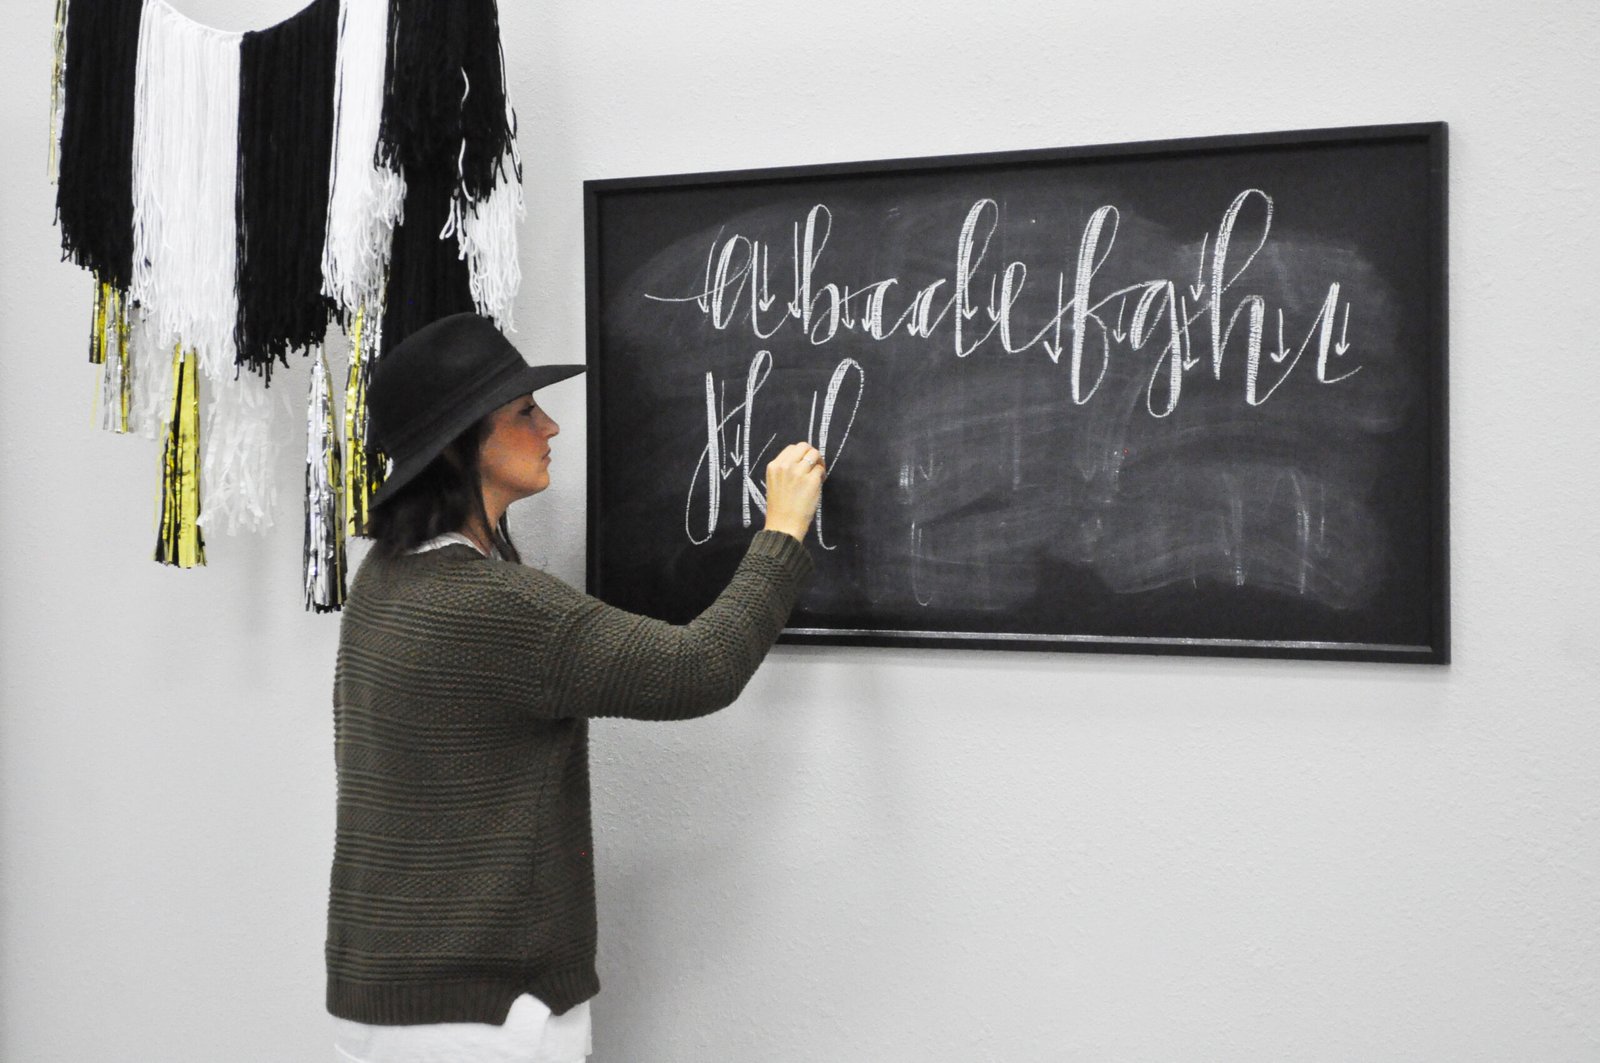 abcdefghi
jkl